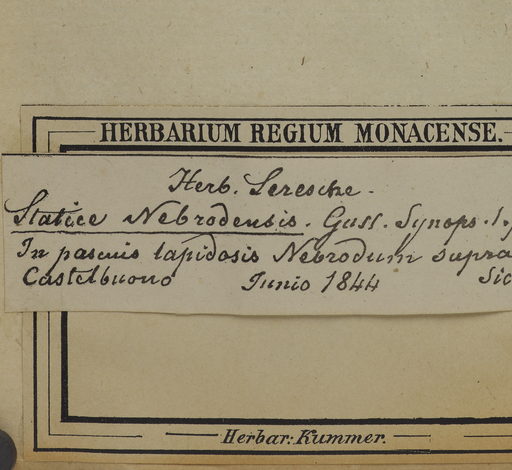 HERBARIUM REGIUM MONACENSE.
Herb. Seresche.
Statice Nebrodensis. Guss. Synops. 1.
In pascuis lapidosis Nebrodum supra
Castelbuono Junio 1844 Sic
Herbar: Kummer.